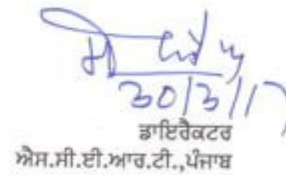 30/3/17
ਡਾਇਰੈਕਟਰ
ਐਸ.ਸੀ.ਈ.ਆਰ.ਟੀ.,ਪੰਜਾਬ